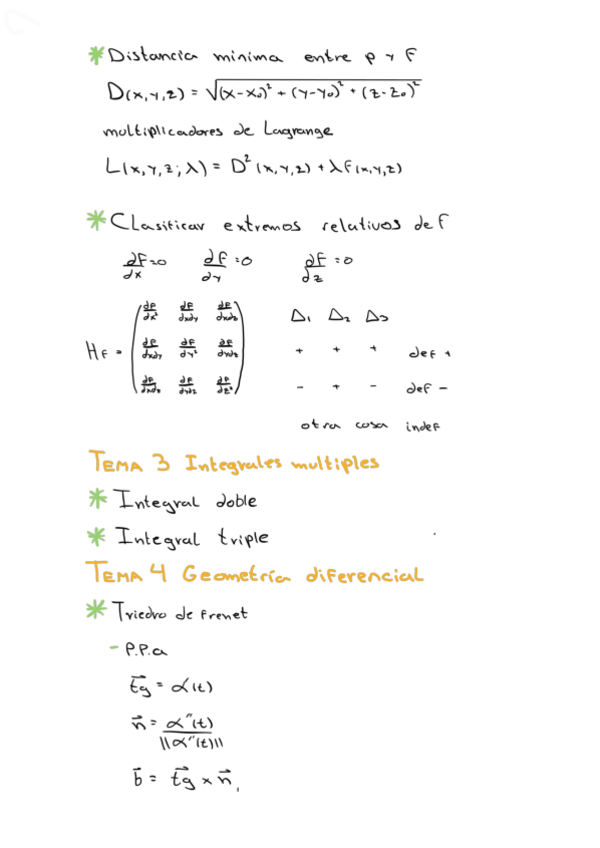 * Distancia minima entre p y f
D(x,y,z) = √(x-x₀)² + (y-y₀)² + (z-z₀)²
multiplicadores de Lagrange
L(x,y,z;λ) = D²(x,y,z) + λF(x,y,z)
* Clasificar extremos relativos de f
∂F/∂x =0 ∂F/∂y =0 ∂F/∂z =0
∂F/∂x² ∂F/∂x∂y ∂F/∂x∂z Δ₁ Δ₂ Δ₃
HF = ∂F/∂x∂y ∂F/∂y² ∂F/∂y∂z + + + def +
∂F/∂x∂z ∂F/∂y∂z ∂F/∂z² - + - def -
otra cosa indef
TEMA 3 Integrales multiples
* Integral doble
* Integral triple
TEMA 4 Geometría diferencial
* Triedro de frenet
- P.P.a
t⃗g = α(t)
n⃗ = α''(t)/||α''(t)||
b⃗ = t⃗g × n⃗